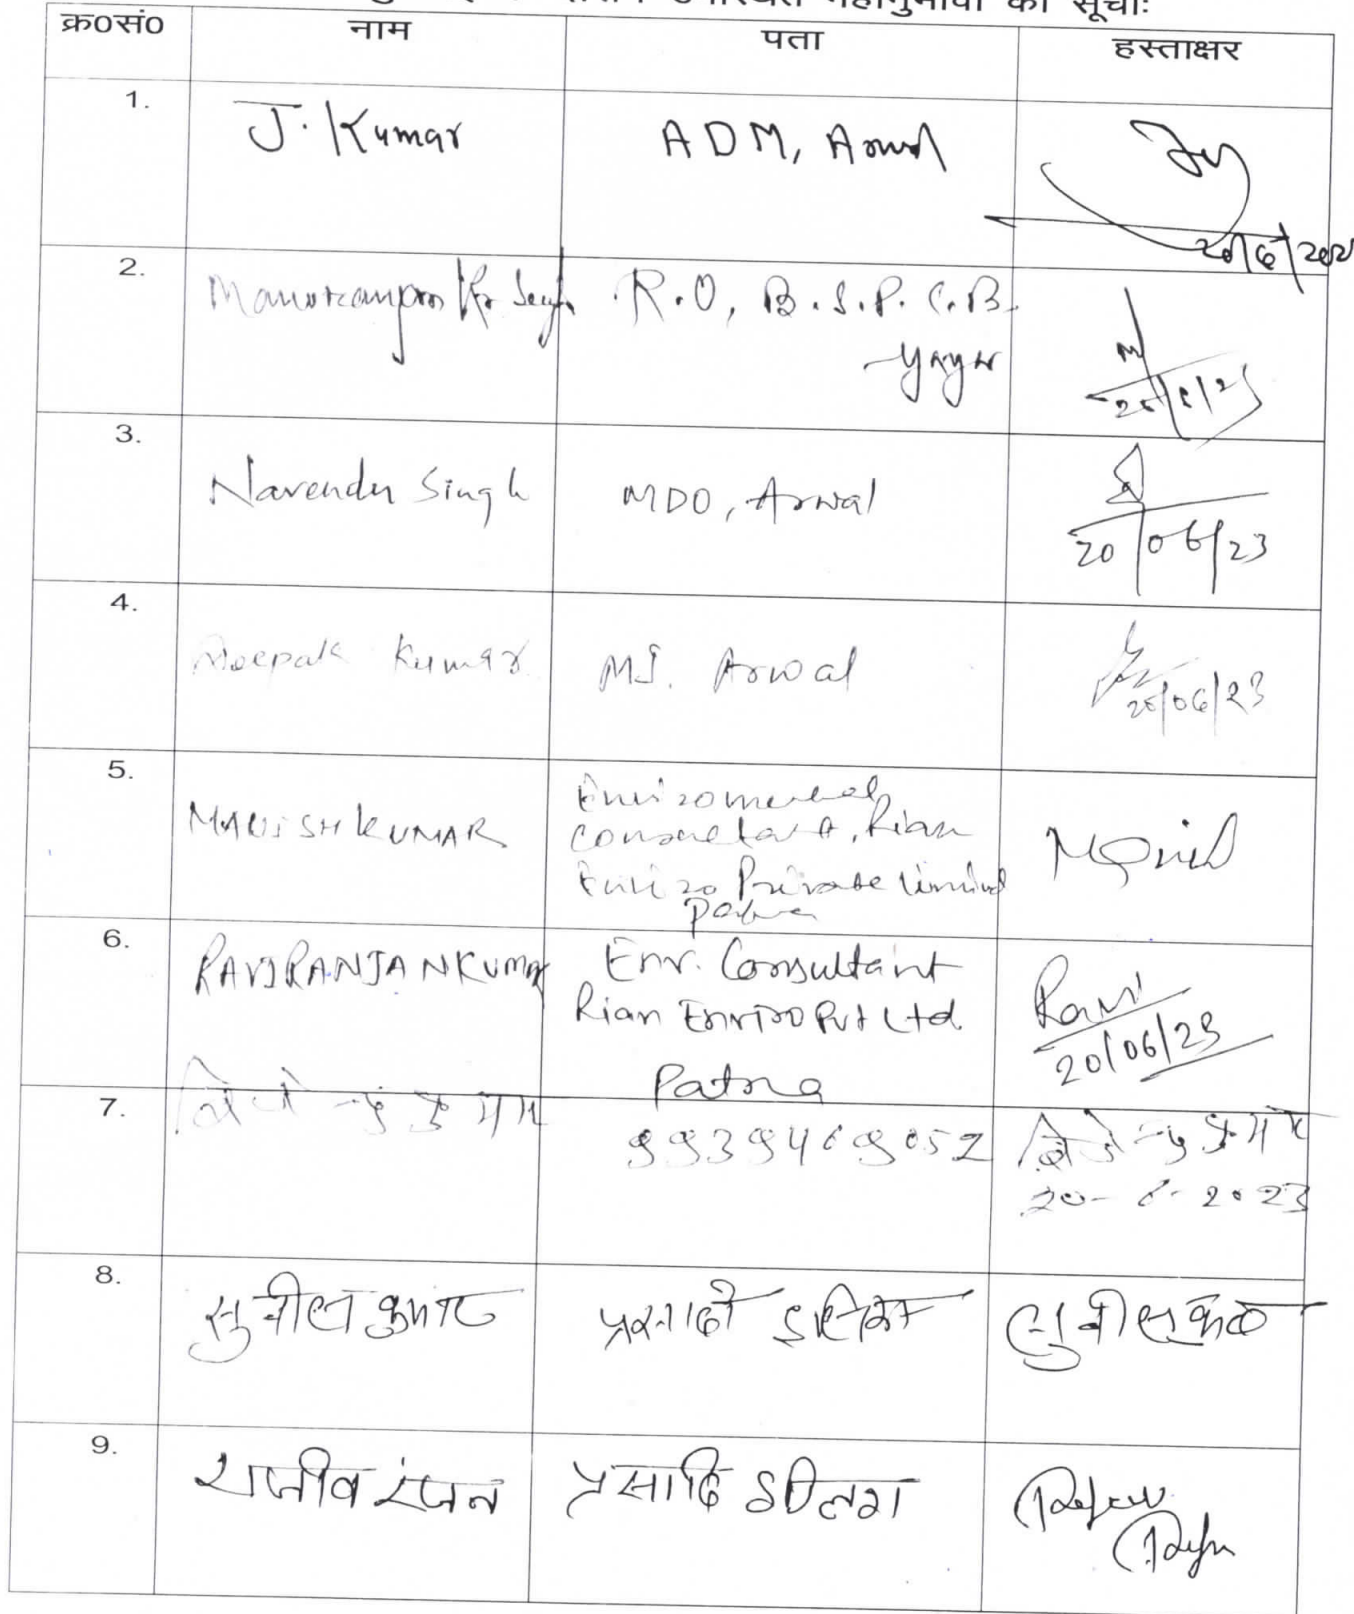 उपस्थित महानुभावों की सूचीः
क्र०सं० नाम पता हस्ताक्षर
1. J. Kumar ADM, Arwal
20/6/202
2. R.O, B.S.P.C.B.
Gaya
20/6/23
3. Narendra Singh MDO, Arwal
20/06/23
4. Deepak Kumar MI. Arwal
20/06/23
5. MANISH KUMAR Enviromental
Consultant, Rian
Enviro Private Limited
Patna
Manish
6. RAVI RANJAN KUMAR Env. Consultant
Rian Enviro Pvt Ltd.
Patna
Ravi
20/06/23
7. कुमार
20-6-2023
8. सुनील कुमार प्रसादी इंग्लिश सुनील कुमार
9. राजीव रंजन प्रसादि इंग्लिश